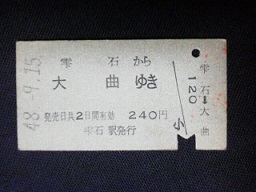 48.-9.15
雫石から
大曲ゆき
発売日共2日間有効 240円
雫石駅発行
雫石➡大曲
120
小